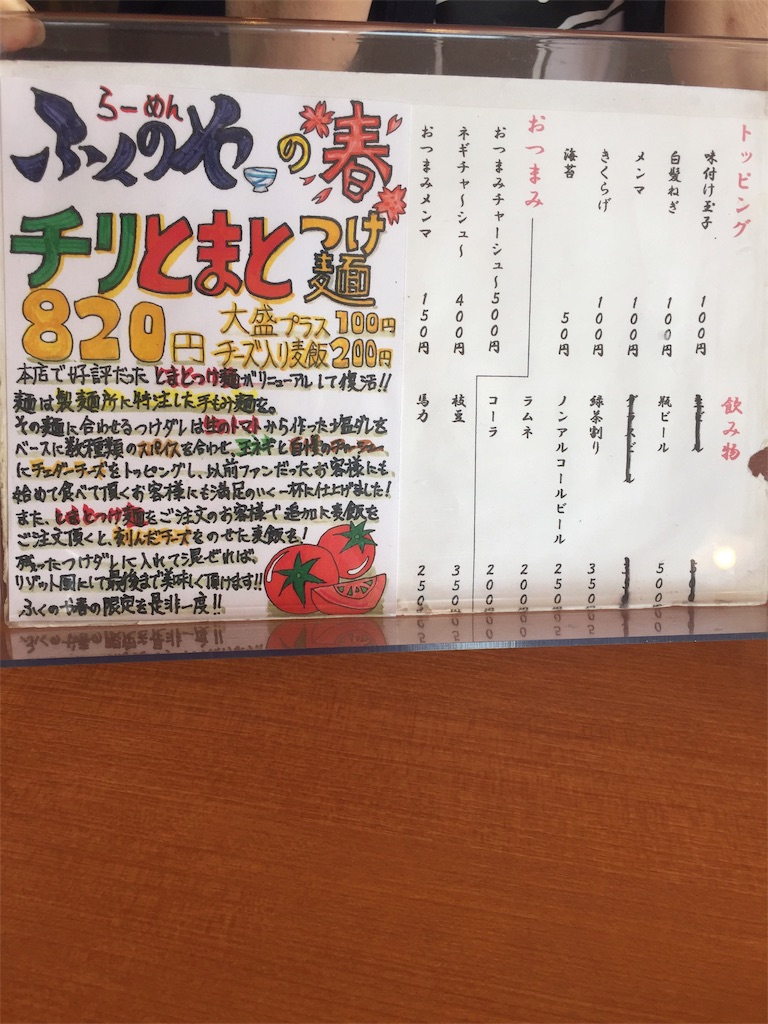 らーめん
ふくのや の春
チリとまとつけ麺
820円
大盛プラス100円
チーズ入り麦飯200円
本店で好評だったとまとつけ麺がリニューアルして復活!!
麺は製麺所に特注した手もみ麺を。
その麺に合わせるつけダレは生のトマトから作った塩ダレを
ベースに数種類のスパイスを合わせ、玉ネギと自慢のチャーシュー
にチェダーチーズをトッピングし、以前ファンだったお客様にも
始めて食べて頂くお客様にも満足のいく一杯に仕上げました!
また、とまとつけ麺をご注文のお客様で追加に麦飯を
ご注文頂くと、刻んだチーズをのせた麦飯を!
残ったつけダレに入れて混ぜれば、
リゾット風にして最後まで美味しく頂けます!!
ふくのや春の限定を是非一度!!
トッピング
味付け玉子 100円
白髪ねぎ 100円
メンマ 100円
きくらげ 100円
海苔 50円
おつまみ
おつまみチャーシュ〜 500円
ネギチャ〜シュ〜 400円
おつまみメンマ 150円
飲み物
瓶ビール 500円
緑茶割り 350円
ノンアルコールビール 250円
ラムネ 200円
コーラ 200円
枝豆 350円
馬力 250円